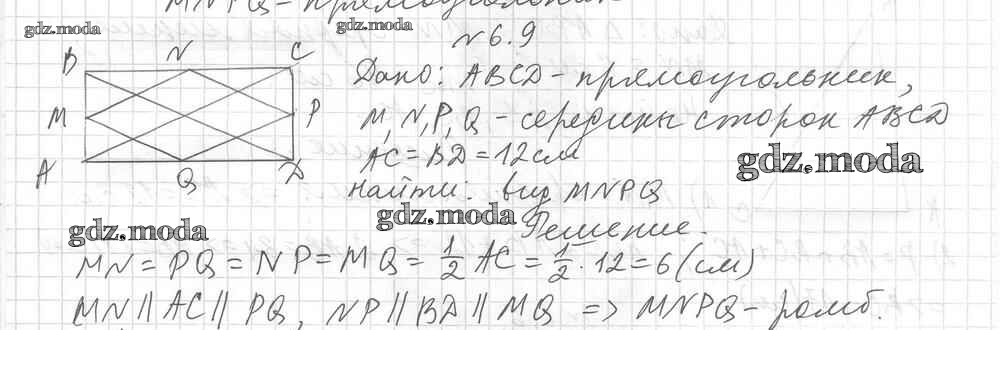 MNPQ - прямоугольник
gdz.moda
gdz.moda
N 6.9
B N C
M P
A Q D
Дано: ABCD - прямоугольник,
M, N, P, Q - середины сторон ABCD
AC = BD = 12 см
gdz.moda
Найти: вид MNPQ
gdz.moda
gdz.moda
Решение.
MN = PQ = NP = MQ = 1/2 AC = 1/2 · 12 = 6 (см)
MN || AC || PQ, NP || BD || MQ => MNPQ - ромб.